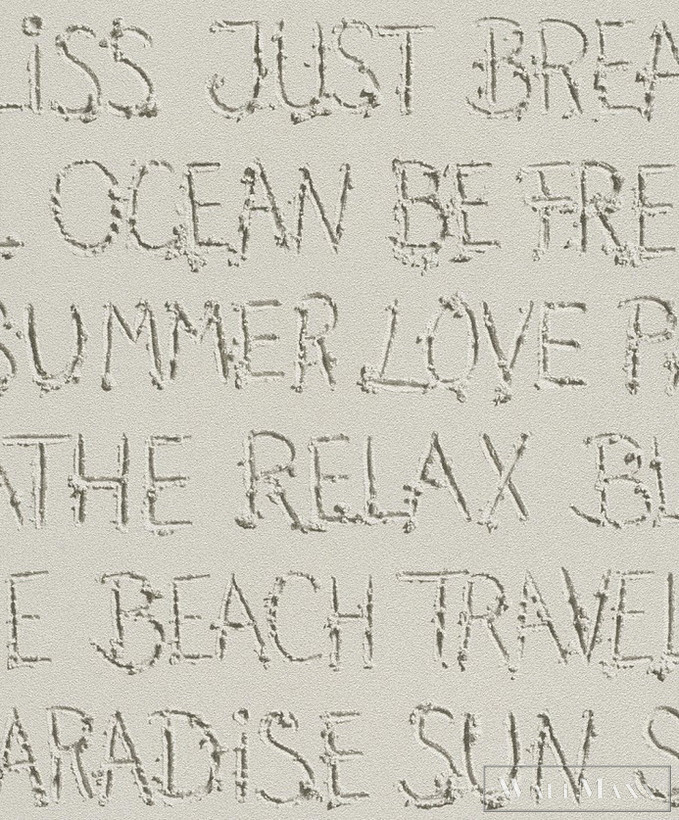 LiSS JUST BREA
L OCEAN BE FRE
SUMMER LOVE PA
ATHE RELAX BL
E BEACH TRAVEL
ARADiSE SUN S
WALLMAX